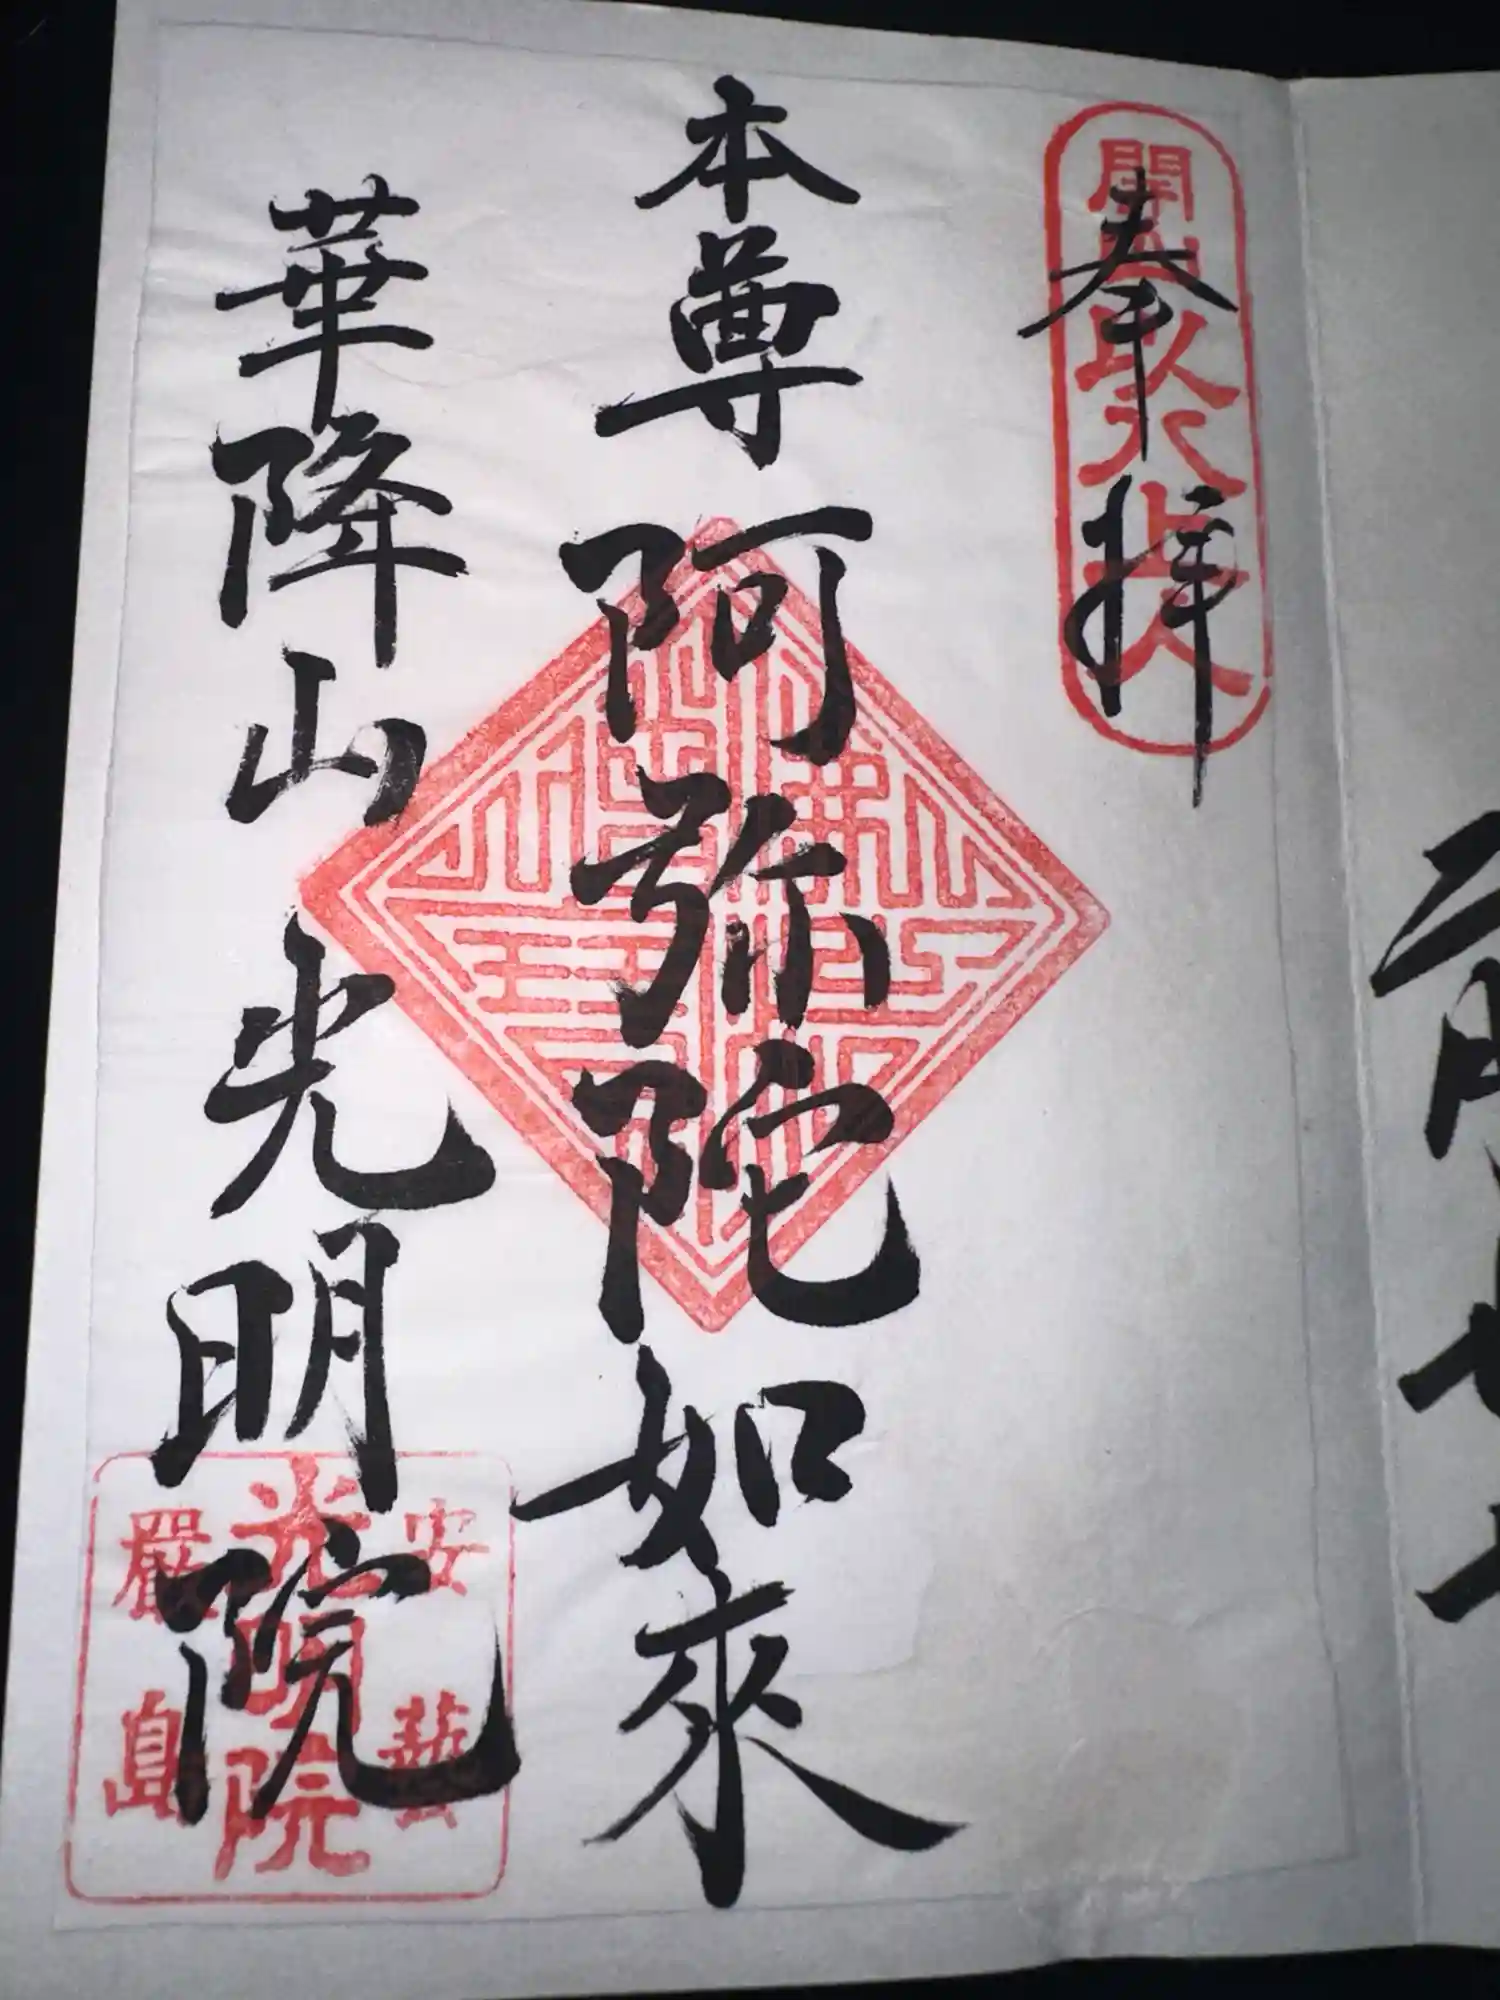 奉拝
開山以八上人
本尊阿弥陀如來
華降山光明院
安藝
光明院
嚴島